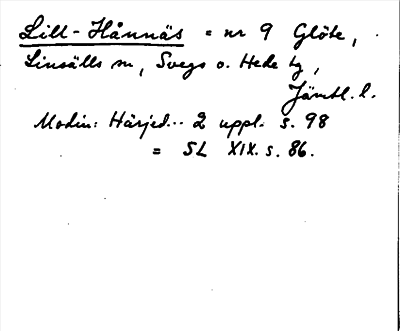 Lill-Hånnäs = nr 9 Glöte,
Linsälls sn, Svegs o. Hede tg,
Jämtl. l.
Modin: Härjed... 2 uppl. s. 98
= SL XIX. s. 86.